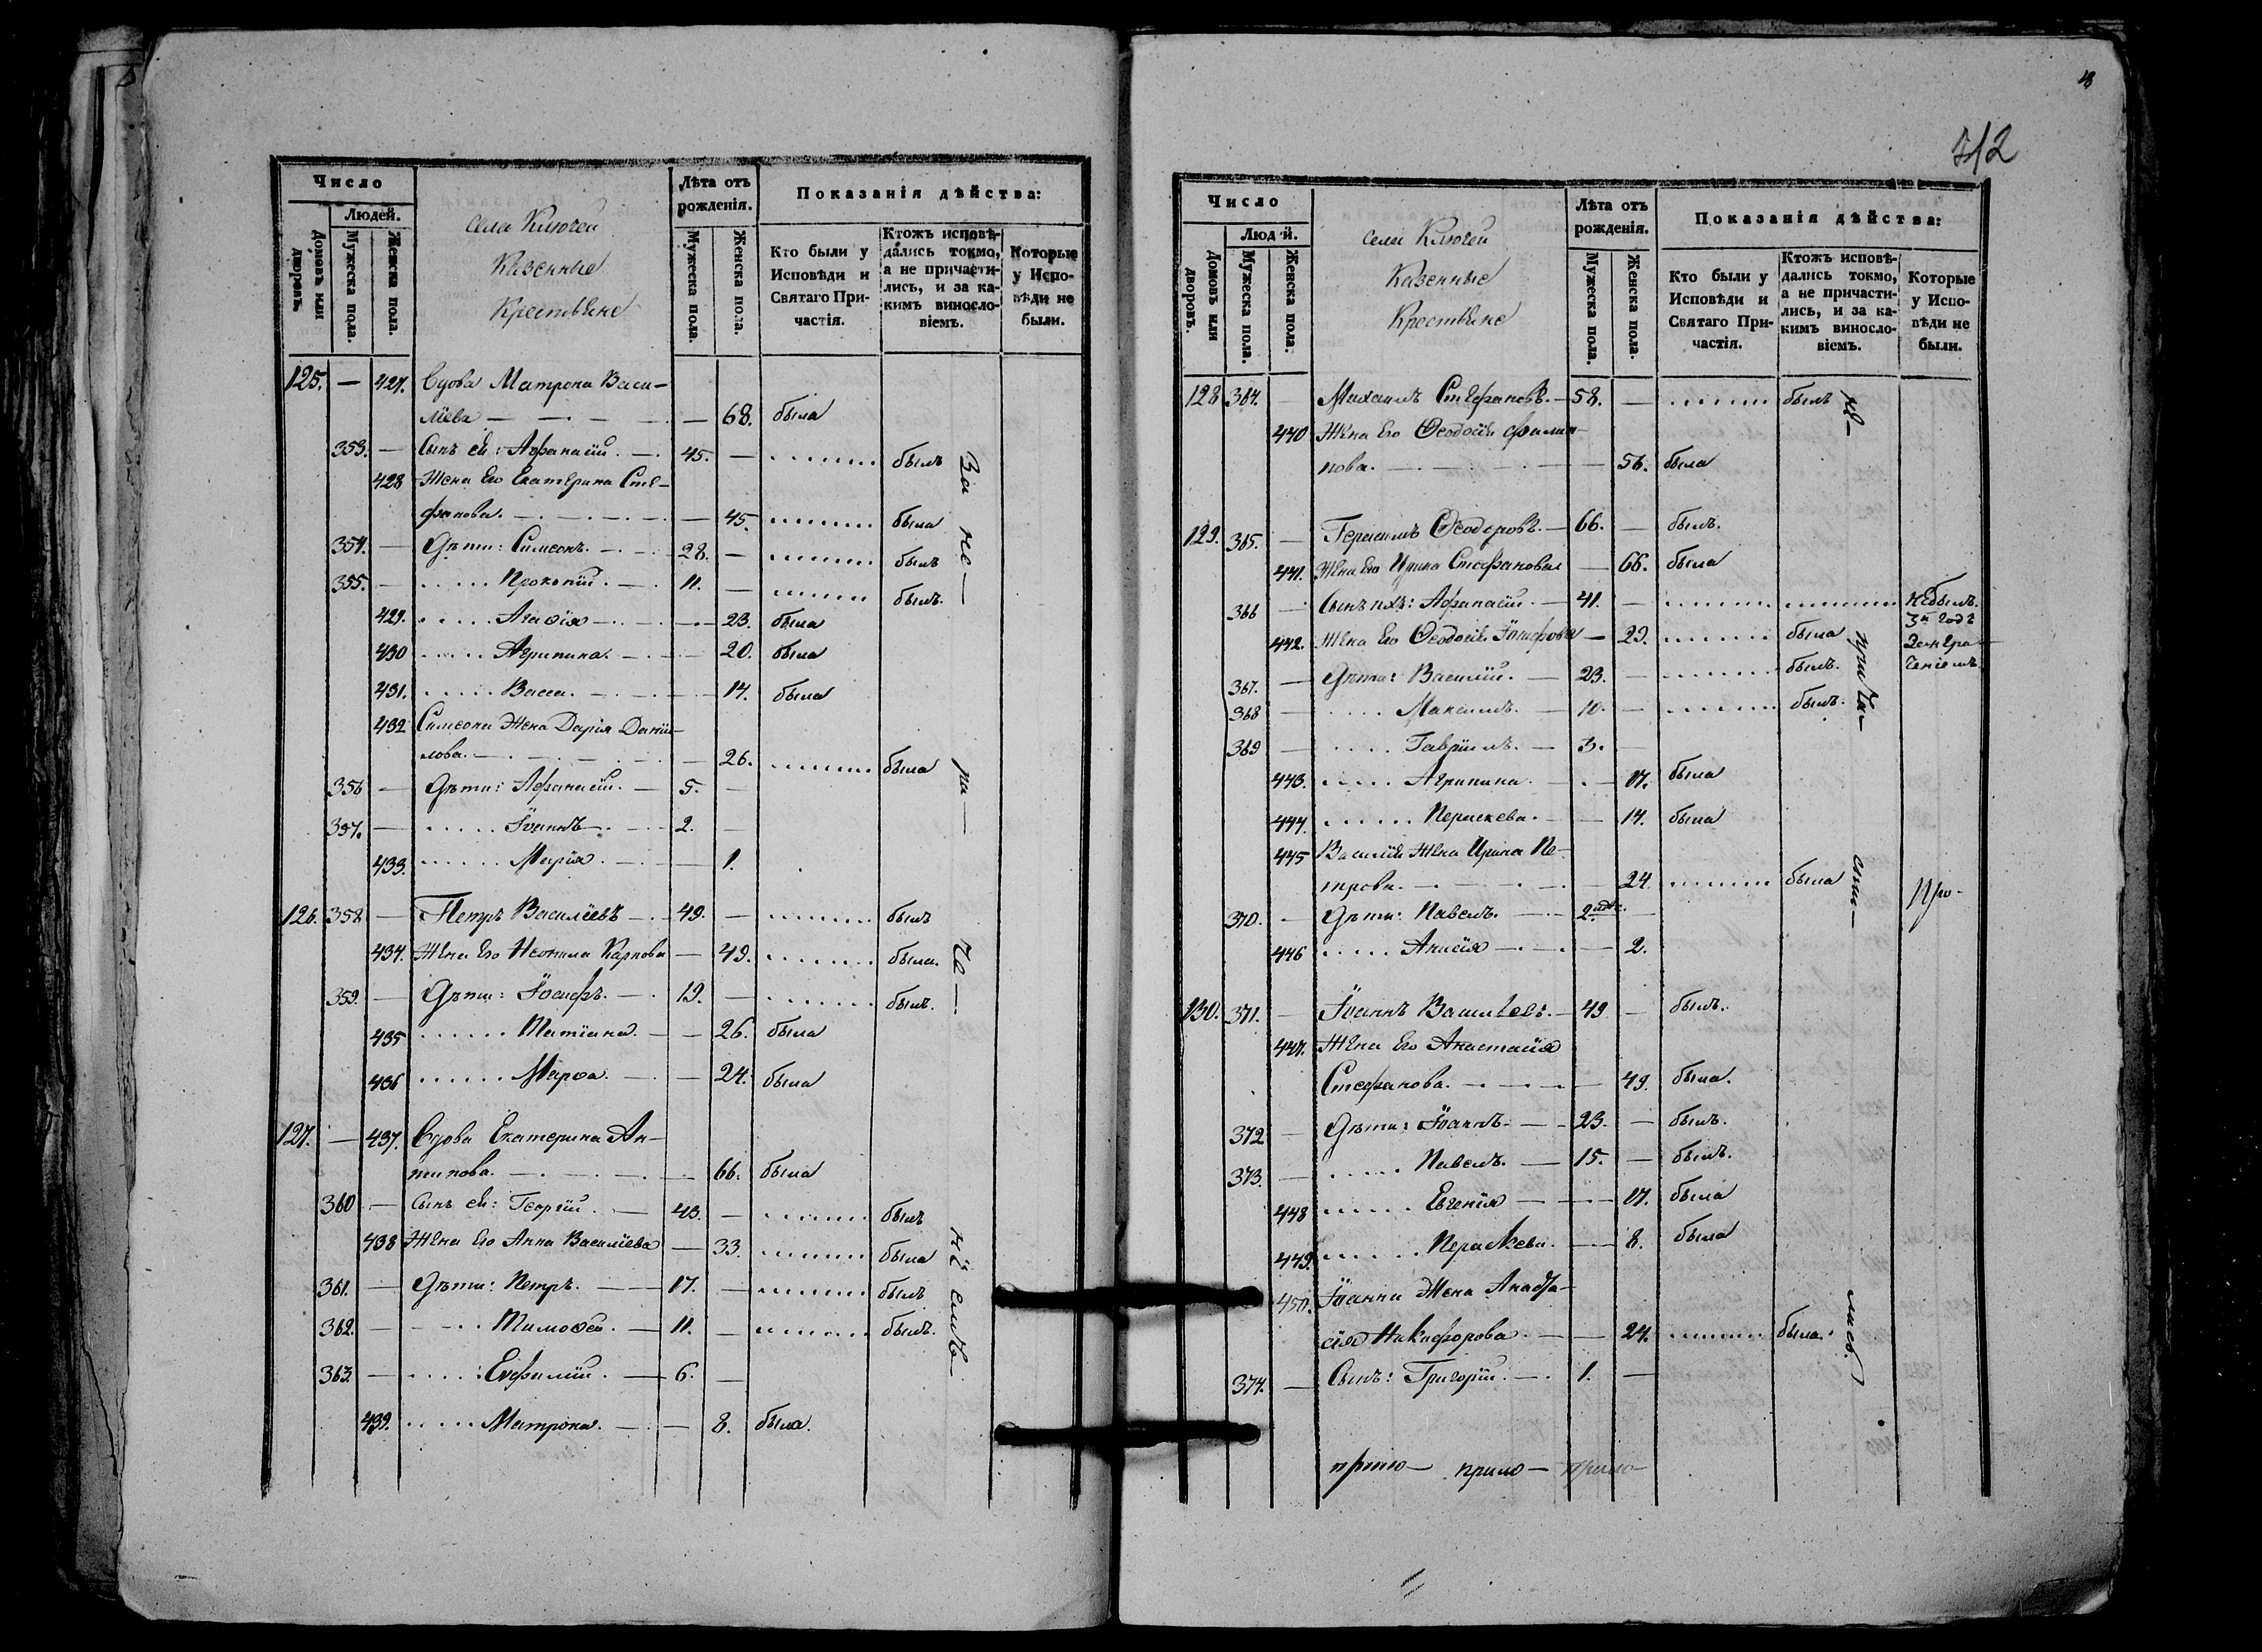 Число
Людей.
Домовъ или дворовъ.
Мужеска пола.
Женска пола.
села Ключей
Казенные
Крестьяне
Лѣта отъ рожденія.
Мужеска пола.
Женска пола.
Показанія дѣйства:
Кто были у Исповѣди и Святаго Причастія.
Ктожъ исповѣдались токмо, а не причастились, и за какимъ винословіемъ.
Которые у Исповѣди не были.
125. — 427. Вдова Матрона Васи-
лiева — — 68. была
353. — Сынъ ей: Афанасiй. — 45. — былъ
428 Жена Его Екатерина Сте-
фанова. — — 45. была
354. — Дѣти: Симеонъ. — 28. — былъ
355. — Прокопiй. — 11. — былъ.
429. Агафiя — — 23. была
430 Агрипина. — — 20. была
431. Васса. — — 14. была
432 Симеона Жена Дарiя Данiи-
лова. — — 26. была
356 — Дѣти: Афанасiй. — 5. —
357. — Iоаннъ. — 2. —
433. Марiя. — — 1.
126. 358 — Петръ Василiевъ — 49. — былъ
434. Жена Его Неонила Карпова — 49. была.
359. — Дѣти: Iосифъ. — 19. — былъ.
435 Татiана. — — 26. была
436 Марѳа. — — 24. была
127. — 437. Вдова Екатерина Ан-
типова. — — 66. была
360 — Сынъ ей: Георгiй. — 43. — былъ
438 Жена Его Анна Василiева — 33. была
361. — Дѣти: Петръ. — 17. — былъ
362. — Тимоѳей. — 11. — былъ.
363. — Евфимiй. — 6. —
439. Матрона. — — 8. была.
За не—
ра—
че—
нiемъ
712
Число
Людей.
Домовъ или дворовъ.
Мужеска пола.
Женска пола.
села Ключей
Казенные
Крестьяне
Лѣта отъ рожденія.
Мужеска пола.
Женска пола.
Показанія дѣйства:
Кто были у Исповѣди и Святаго Причастія.
Ктожъ исповѣдались токмо, а не причастились, и за какимъ винословіемъ.
Которые у Исповѣди не были.
128 364. — Михаилъ Стефановъ. — 58. — былъ
440 Жена Его Ѳеодосiя Филип-
пова. — — 56. была
129. 365. — Герасимъ Ѳеодоровъ. — 66. — былъ.
441. Жена Его Ирина Стефанова — 66. была
366 — Сынъ ихъ: Афанасiй. — 41. — небылъ.
442. Жена Его Ѳеодосiя Iосифова — 29. была
367. — Дѣти: Василiй. — 23. — былъ.
368 — Максимъ. — 10. — былъ.
369 — Гаврiилъ. — 3. —
443. Агрипина. — — 17. была
444. Параскева. — — 14. была
445 Василiя Жена Ирина Пе-
трова. — — 24 была
370. — Дѣти: Павелъ. — 2. —
446 Анисiя — — 2.
130. 371. — Iоаннъ Василiевъ. — 49 — былъ.
447. Жена Его Анастасiя
Стефанова. — — 49. была.
372 — Дѣти: Iоаннъ. — 23. — былъ.
373. — Павелъ. — 15. — былъ.
448 Евгенiя — — 17. была
449. Параскева. — — 8. была
450. Iоанна Жена Анаста-
сiя Никифорова. — — 24. была.
374. — Сынъ: Григорiй. — 1. —
не—
прича—
сти—
лись.